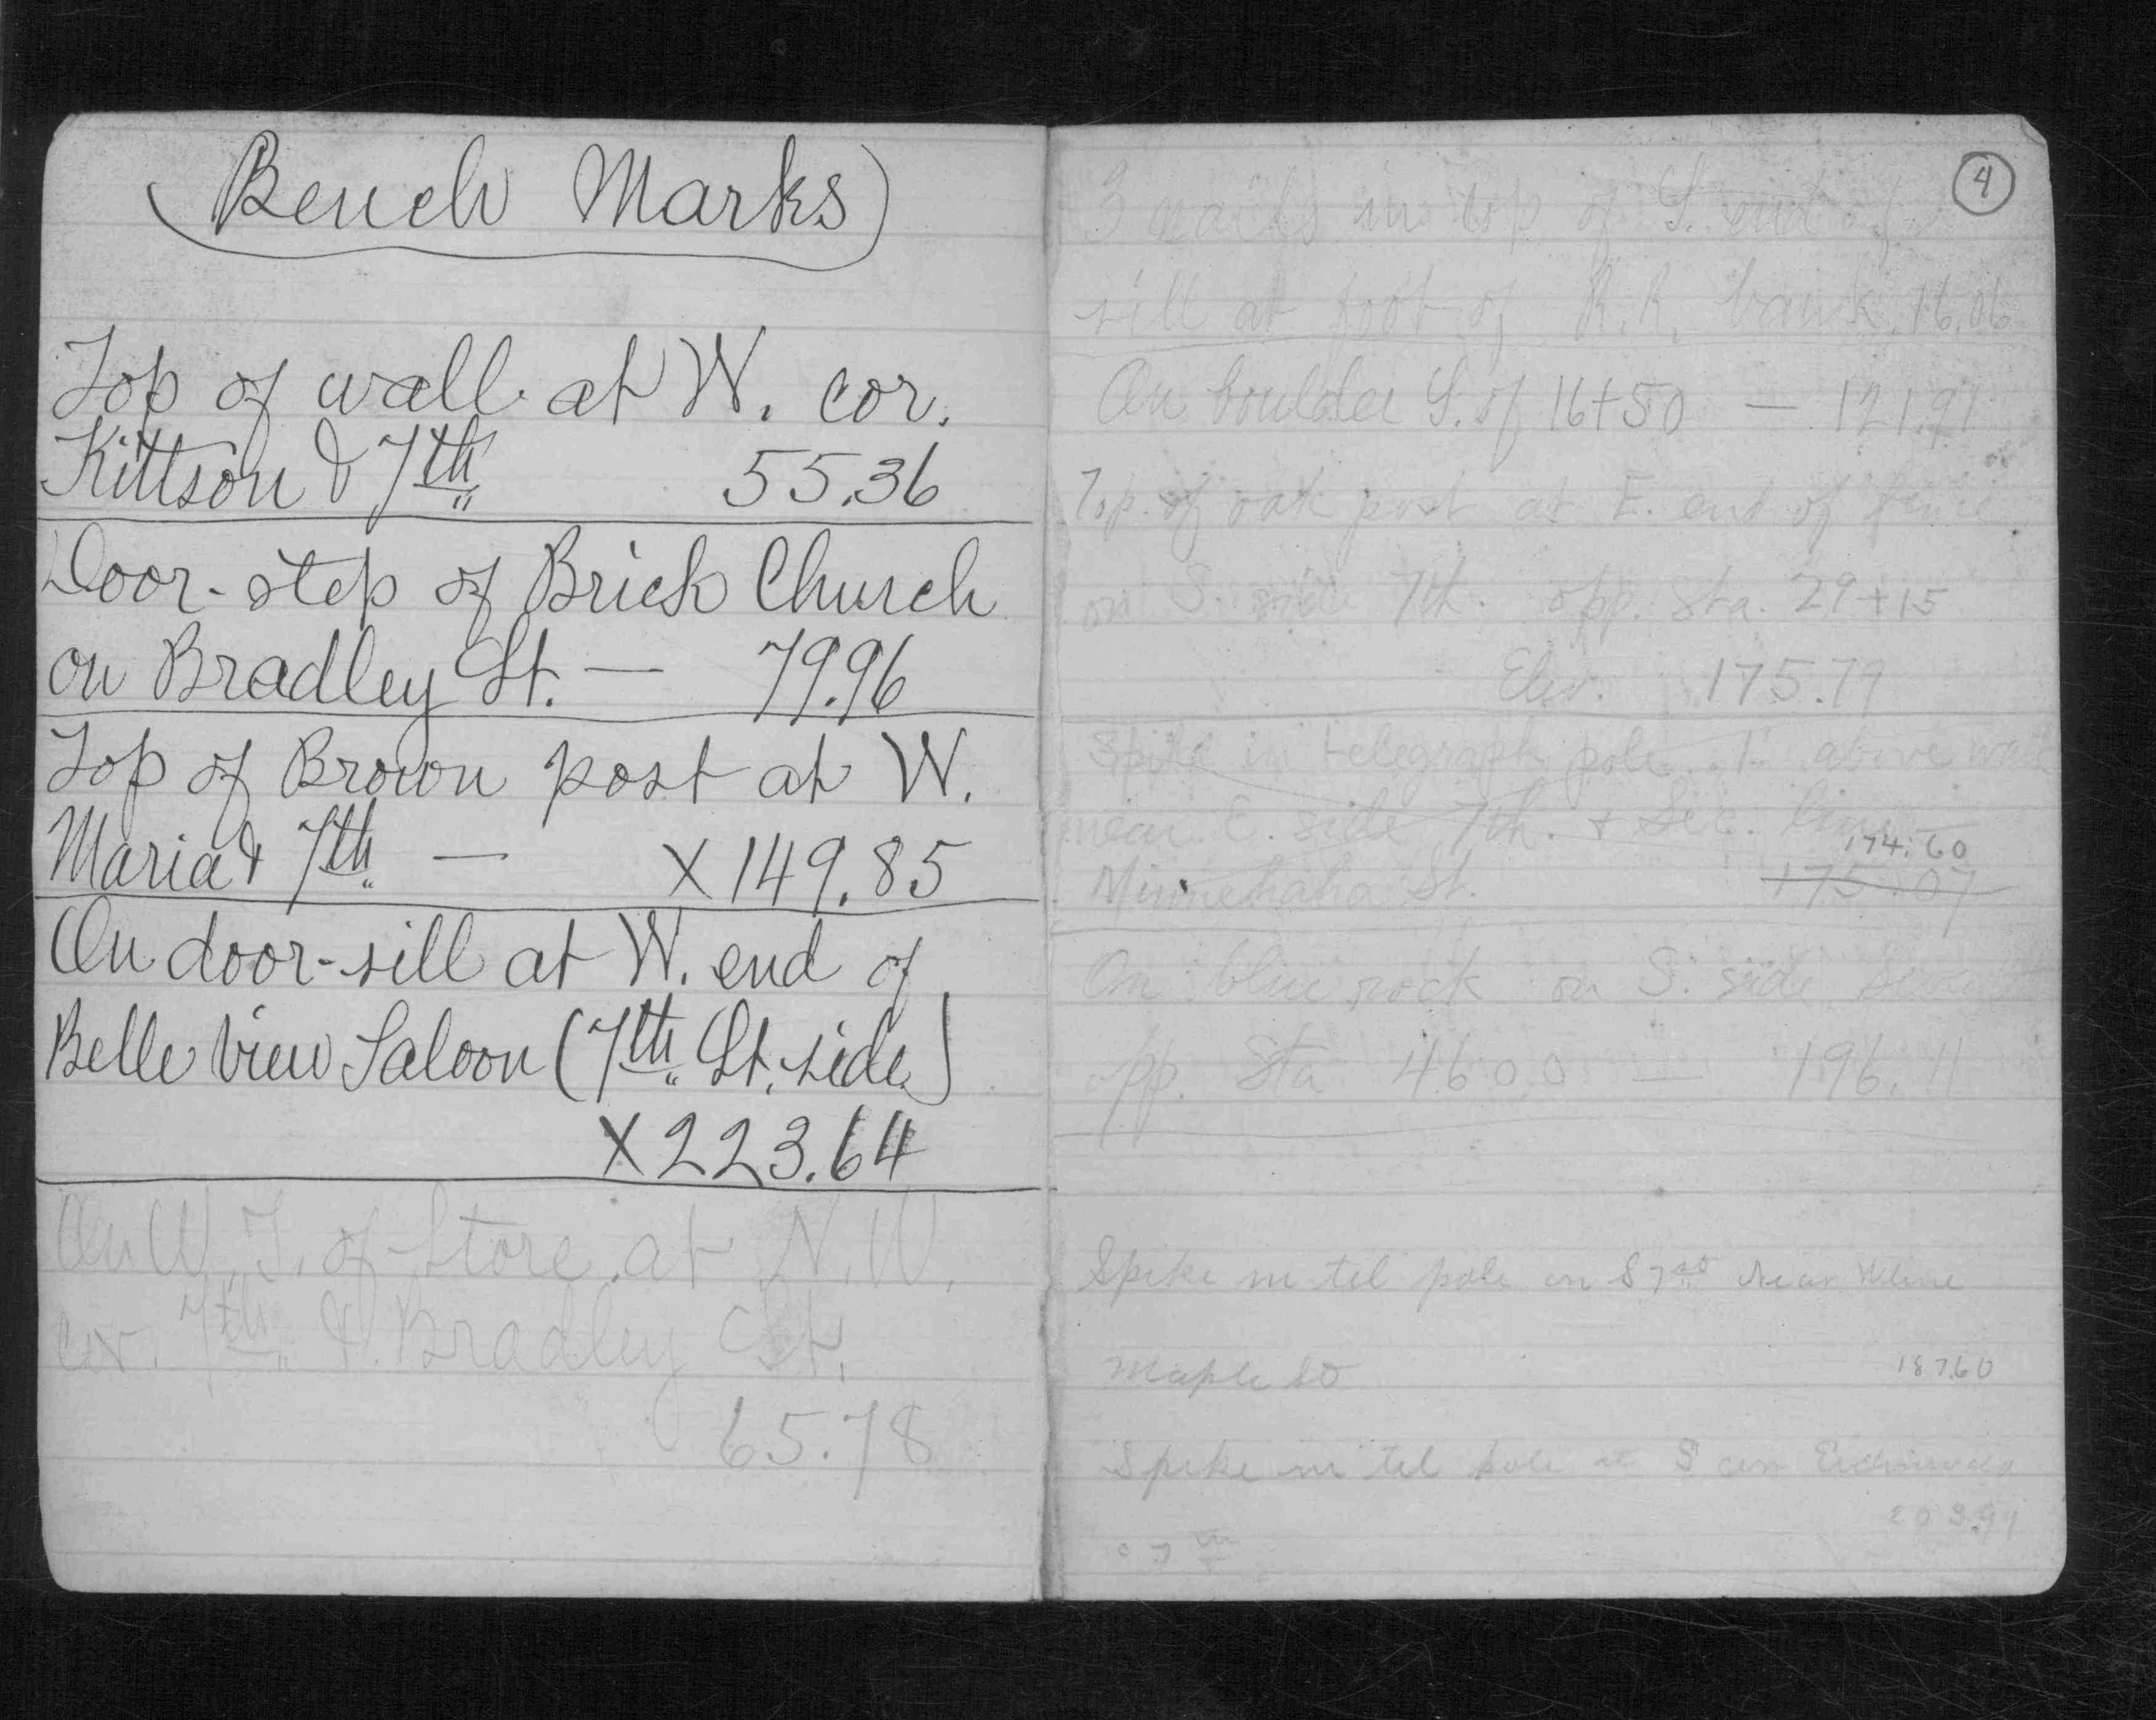 (Bench Marks)
Top of wall at W. cor.
Kittson & 7th 55.36
Door-step of Brick Church
on Bradley St. — 79.96
Top of Brown post at W.
Maria & 7th — X149.85
On door-sill at W. end of
Belle View Saloon (7th St. side)
X223.64
On W. T. of Store at N.W.
cor. 7th & Bradley St.
65.78
4
3 nails in top of S. end of
sill at foot of R.R. bank. 16.06
On boulder S. of 16+50 — 121.91
Top of oak post at E. end of fence
on S. side 7th. opp. Sta. 29+15
Elev. 175.79
Spike in telegraph pole 1' above
near E. side 7th. + Sec. line
174.60
Minnehaha St. 175.07
On blue rock on S. side
opp. Sta 46 00 — 196.11
Spike in tel pole on S 7th near
Maple St 187.60
Spike in tel pole at S cor
203.94